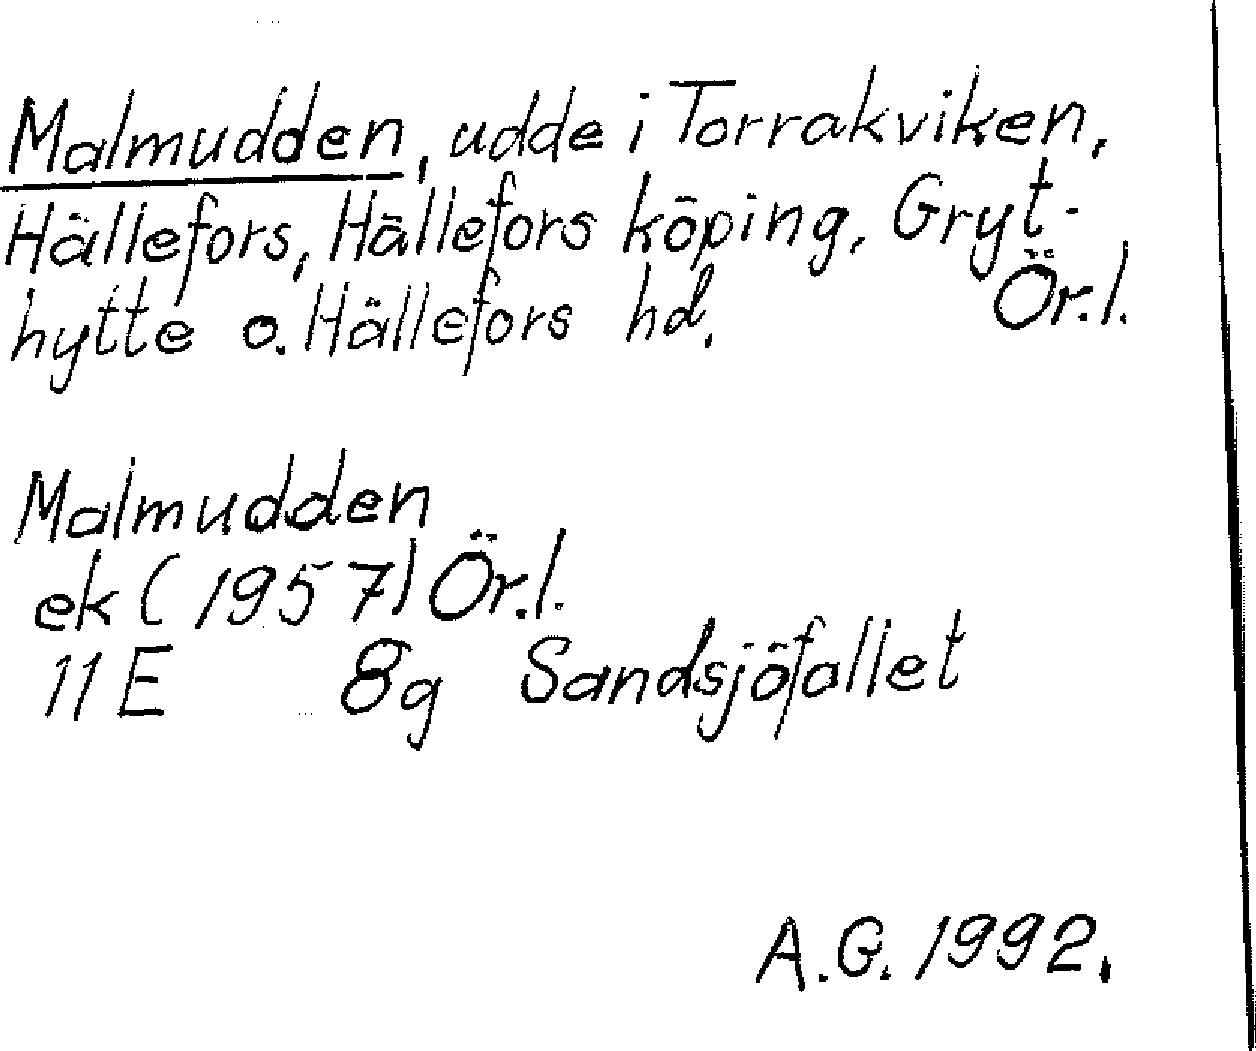 Malmudden, udde i Torrakviken,
Hällefors, Hällefors köping, Gryt-
hytte o. Hällefors hd. Ör.l.
Malmudden
ek (1957) Ör.l.
11 E 8g Sandsjöfallet
A.G. 1992.